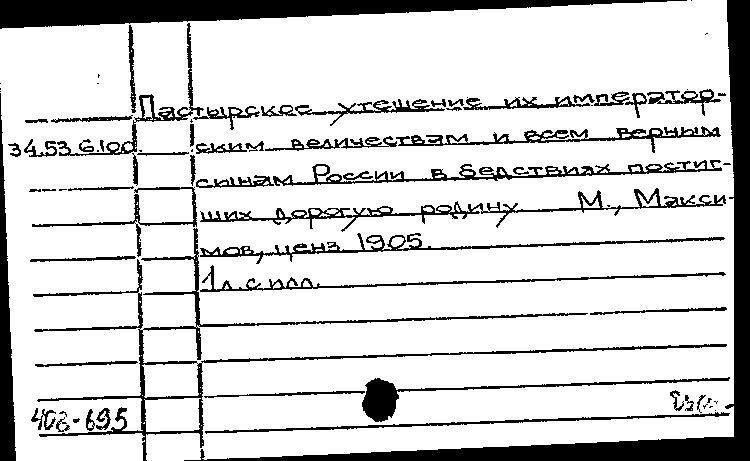 Пастырское утешение их император-
34.53.6.100. ским величествам и всем верным
сынам России в бедствиях постиг-
ших дорогую родину М., Макси-
мов, ценз 1905.
1л. с илл.
408-695